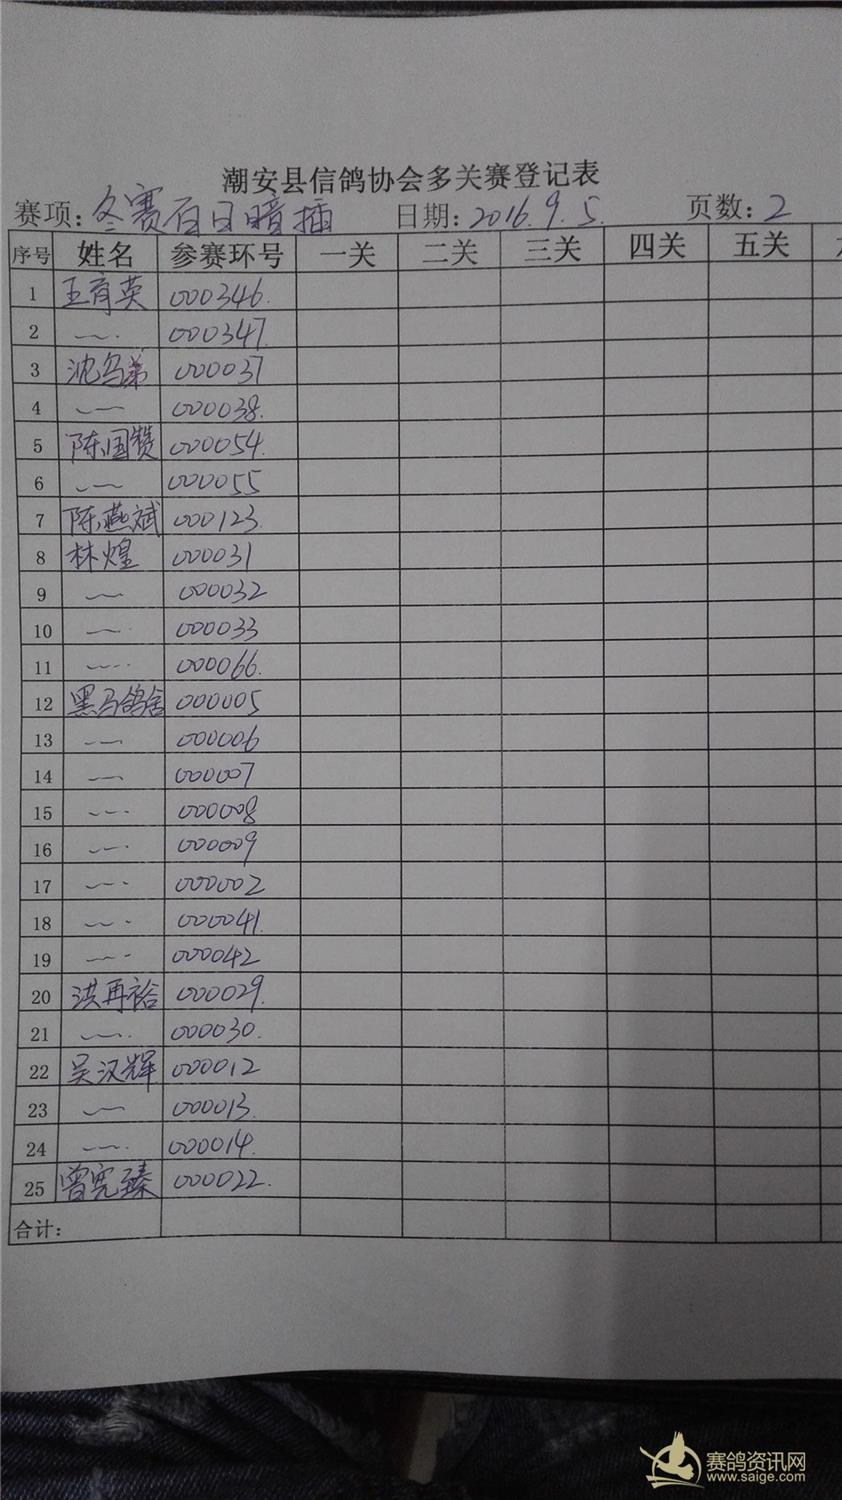 潮安县信鸽协会多关赛登记表
赛项：冬赛百日暗插 日期：2016.9.5. 页数：2
序号 姓名 参赛环号 一关 二关 三关 四关 五关
1 王育英 000346.
2 〃 000347
3 沈乌弟 000037
4 〃 000038.
5 陈国赞 000054.
6 〃 000055
7 陈燕斌 000123.
8 林煌 000031
9 〃 000032
10 〃 000033
11 〃 000066.
12 黑马鸽舍 000005
13 〃 000006
14 〃 000007
15 〃 000008
16 〃 000009
17 〃 000002
18 〃 000041.
19 〃 000042
20 洪再裕 000029.
21 〃 000030.
22 吴汉辉 000012
23 〃 000013.
24 〃 000014.
25 曾宪臻 000022.
合计：
赛鸽资讯网
www.saige.com